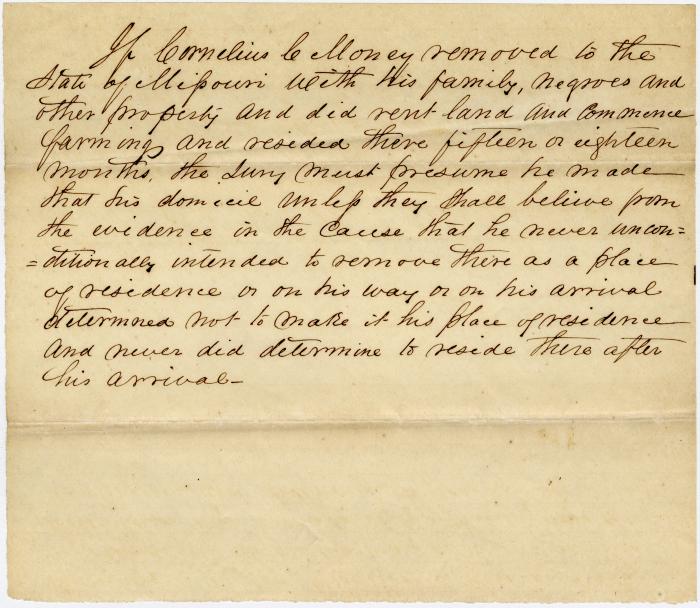 If Cornelius C Money removed to the
State of Missouri with his family, negroes and
other property and did rent land and commence
farming and resided there fifteen or eighteen
months, the Jury must presume he made
that his domicil unless they shall believe from
the evidence in the cause that he never uncon=
=ditionally intended to remove there as a place
of residence or on his way or on his arrival
determned not to make it his place of residence
and never did determine to reside there after
his arrival-